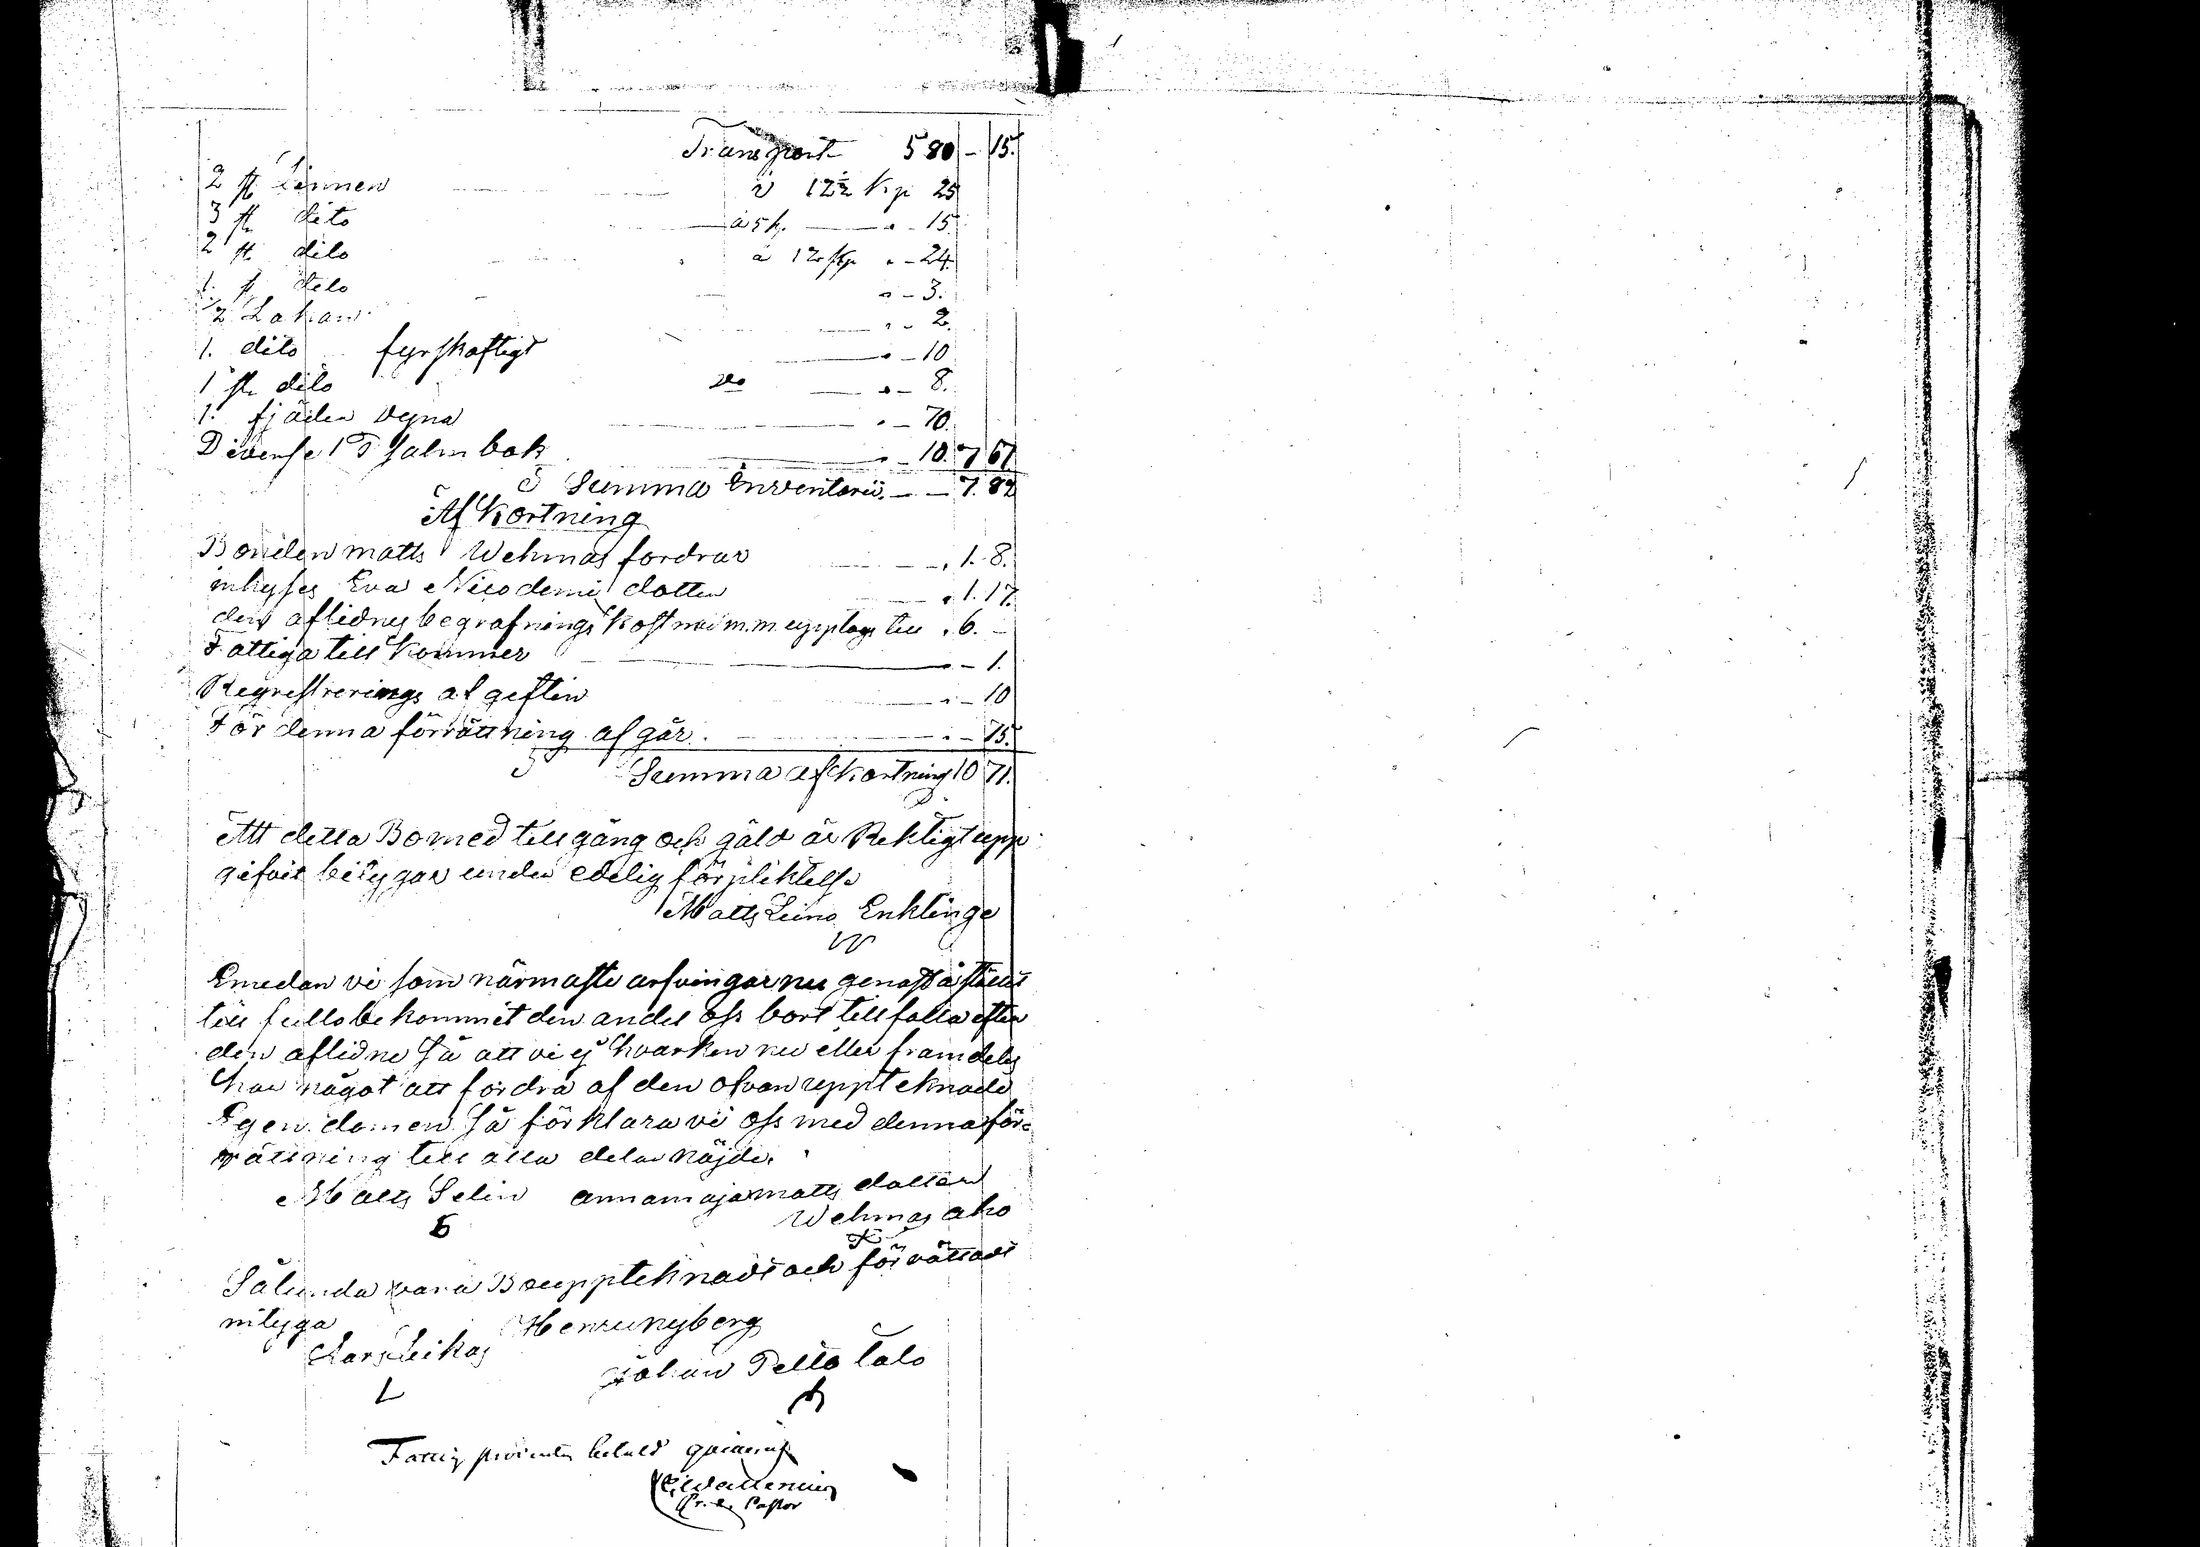 Transport 580 - 15.
2 st Linnen à 12½ Kp 25
3 st dito à 5 k. " - 15.
2 st dito à 12 Kp " - 24.
1. st dito " - 3.
2 Lakan " - 2.
1. dito fyrskaftigt " - 10
1 st dito do " - 8.
1. fjäder Dyna " - 70.
Diverse 1 Psalmbok " - 10. 7 67
Summa Inventarii. - - 7. 82
Af Kortning
Bonden matts Wehmas fordrar " 1. 8.
inhyses Eva Nicodemi dotter " 1. 17.
den aflidnes begrafnings Kostnad m.m upptages till " 6. -
Fattiga till Kommer " - 1.
Regrestrerings af geften " - 10
För denna förrättning af går. " - 75.
Summa afkortning 10 71.
Att detta Bo med till gång och gäld är Rektigt upp
gifvit betygar under edelig förpliktelse
Matts Leino Enklinge
Emedan vi som närmaste arfvingar nu genast å stället
till fullo bekommit den andel oss bort tillfalla efter
den aflidne Så att vi ej hvarken nu eller framdeles
har något att fordra af den ofvan uppteknade
Egen domen Så för klara vi oss med denna för=
rättning till alla delar nöjde.
Matts Selin annamaja matts dotter
Wehmas aho
Sålunda vara Bouppteknadt och förrättadt
intyga Henr. nyberg
Lars Leikas Johan Pelto talo
L
Fattig procenten betald qvitteras
Wallenius
Pastor